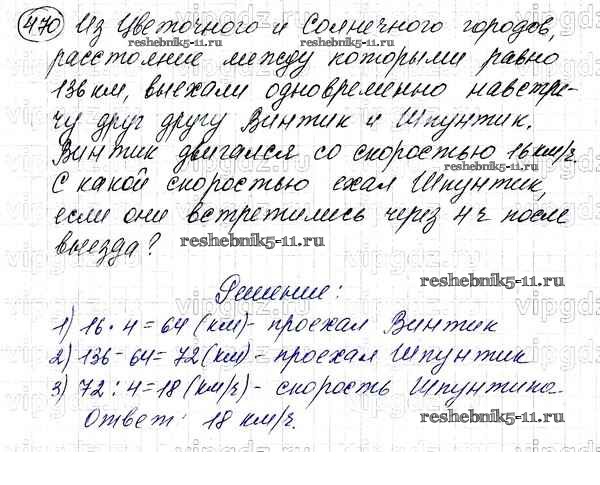 470 Из Цветочного и Солнечного городов,
reshebnik5-11.ru
расстояние между которыми равно
136 км, выехали одновременно навстре-
чу друг другу Винтик и Шпунтик.
Винтик двигался со скоростью 16 км/ч.
reshebnik5-11.ru
С какой скоростью ехал Шпунтик,
если они встретились через 4 ч после
выезда? reshebnik5-11.ru
reshebnik5-11.ru
Решение:
1) 16 · 4 = 64 (км) - проехал Винтик
2) 136 - 64 = 72 (км) - проехал Шпунтик
3) 72 : 4 = 18 (км/ч) - скорость Шпунтика.
Ответ: 18 км/ч. reshebnik5-11.ru